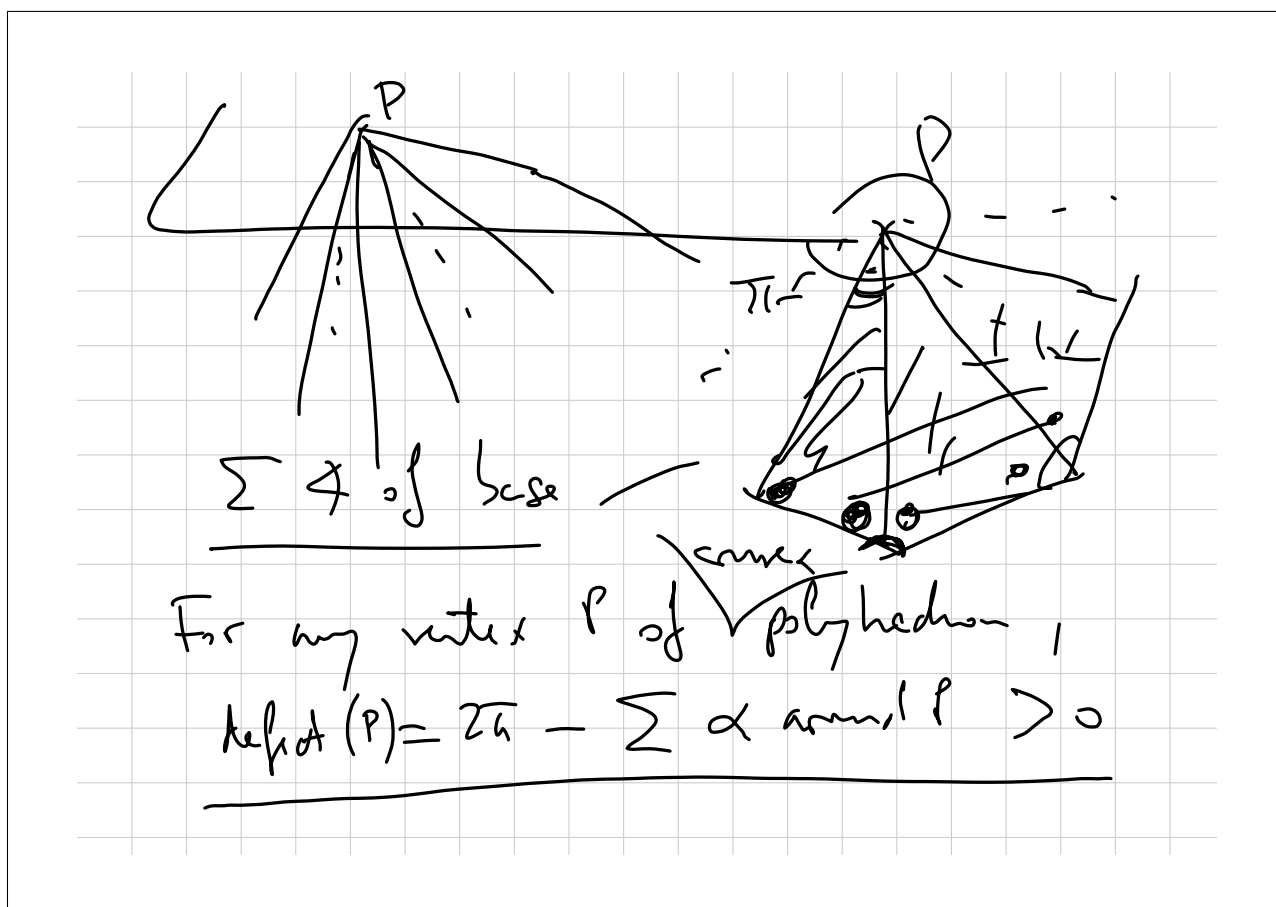 P
P
π -
Σ ∢ of base -
convex
For any vertex P of polyhedron ,
defect (P) = 2π - Σ α around P > 0